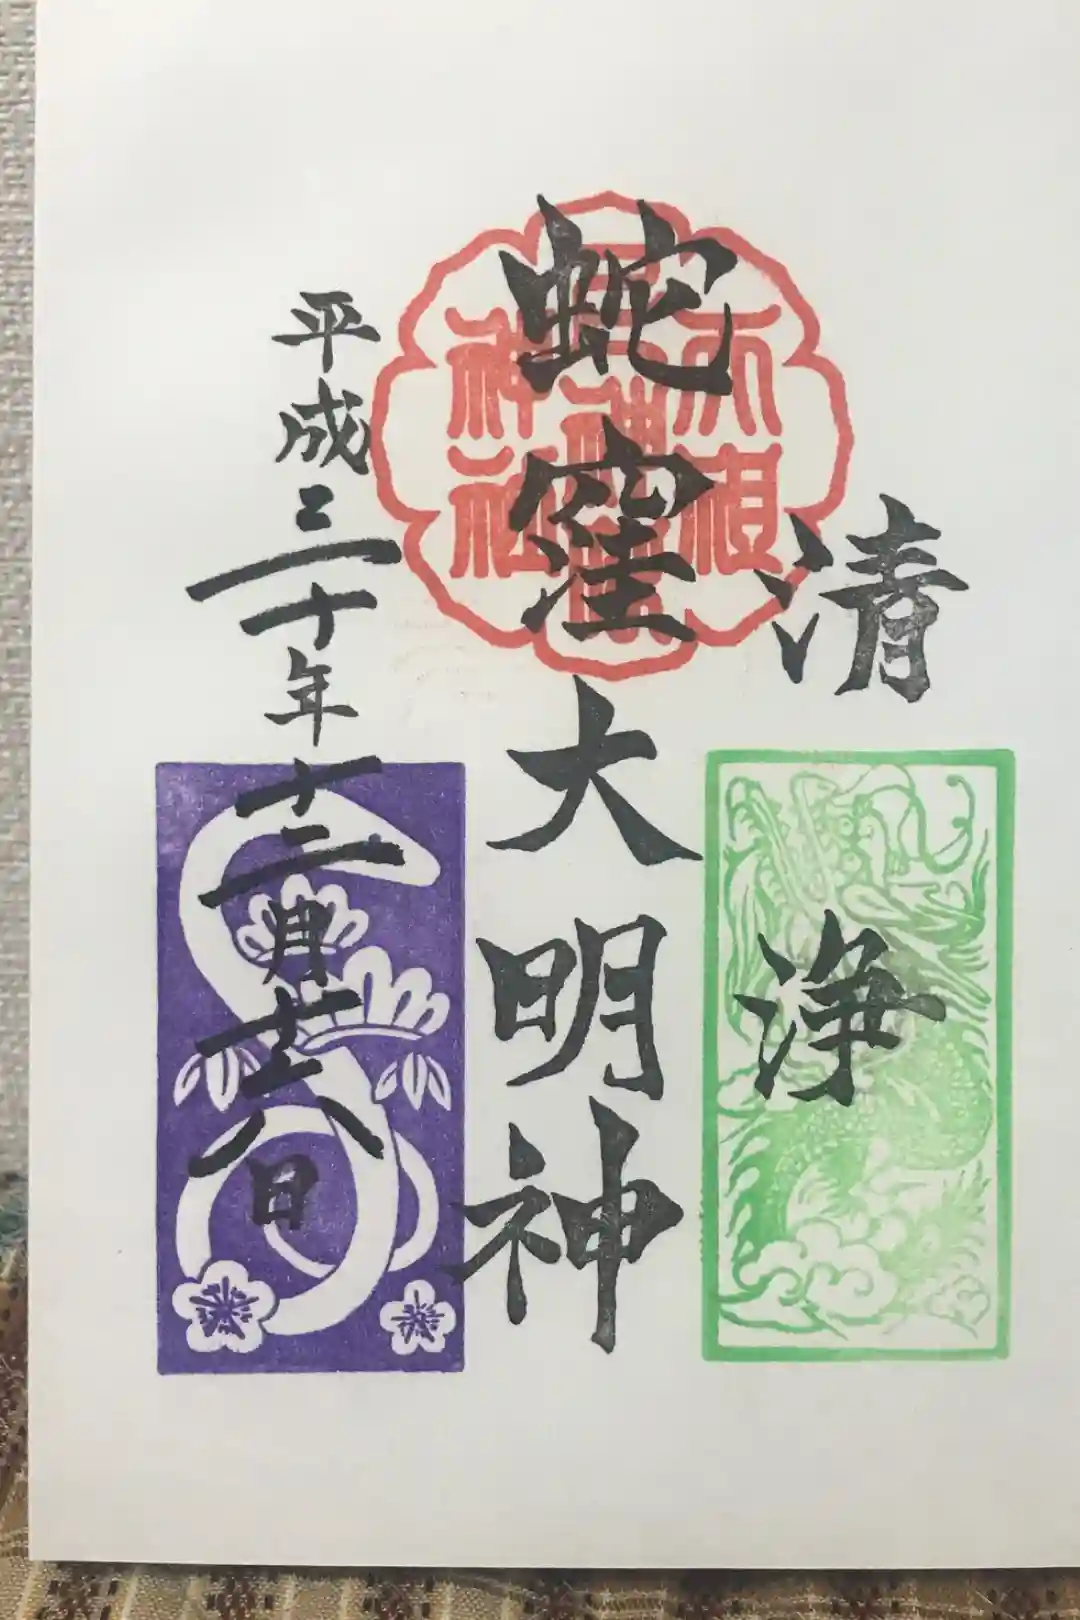 清浄
蛇窪大明神
平成三十年十二月廿八日
天祖
神社